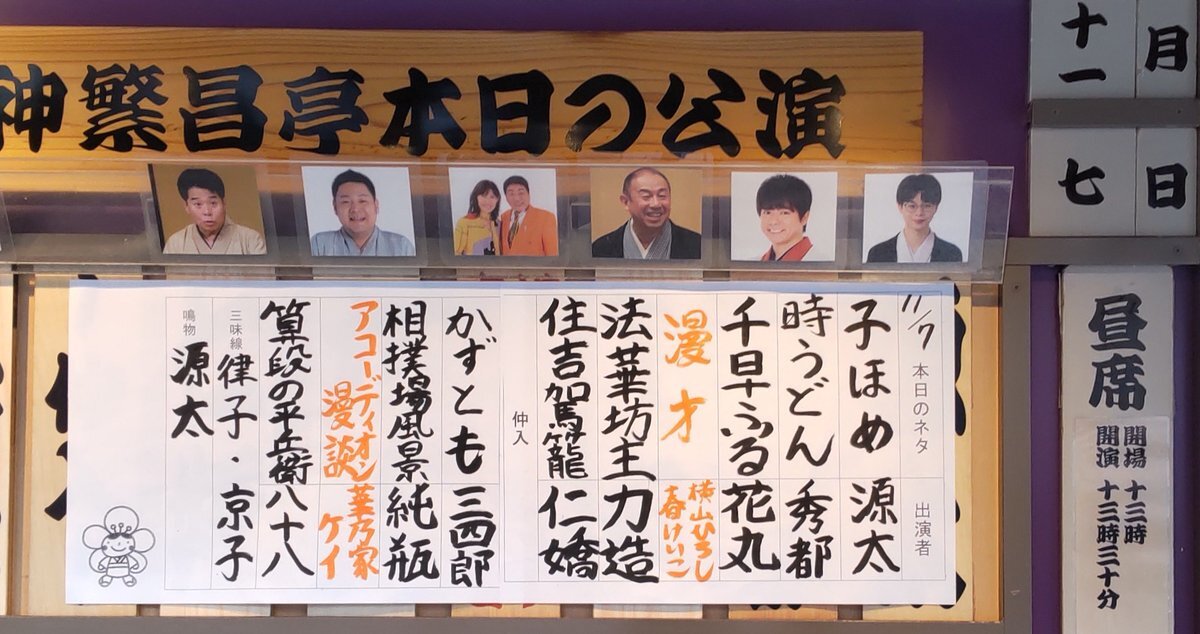 神繁昌亭本日の公演
十一月
七日
昼席
開場 十三時
開演 十三時三十分
11/7 本日のネタ 出演者
子ほめ 源太
時うどん 秀都
千早ふる 花丸
漫才 横山ひろし 春けいこ
法華坊主 力造
住吉駕籠 仁嬌
仲入
かずとも 三四郎
相撲場風景 純瓶
アコーディオン漫談 華乃家ケイ
算段の平兵衛 八十八
三味線 律子・京子
鳴物 源太